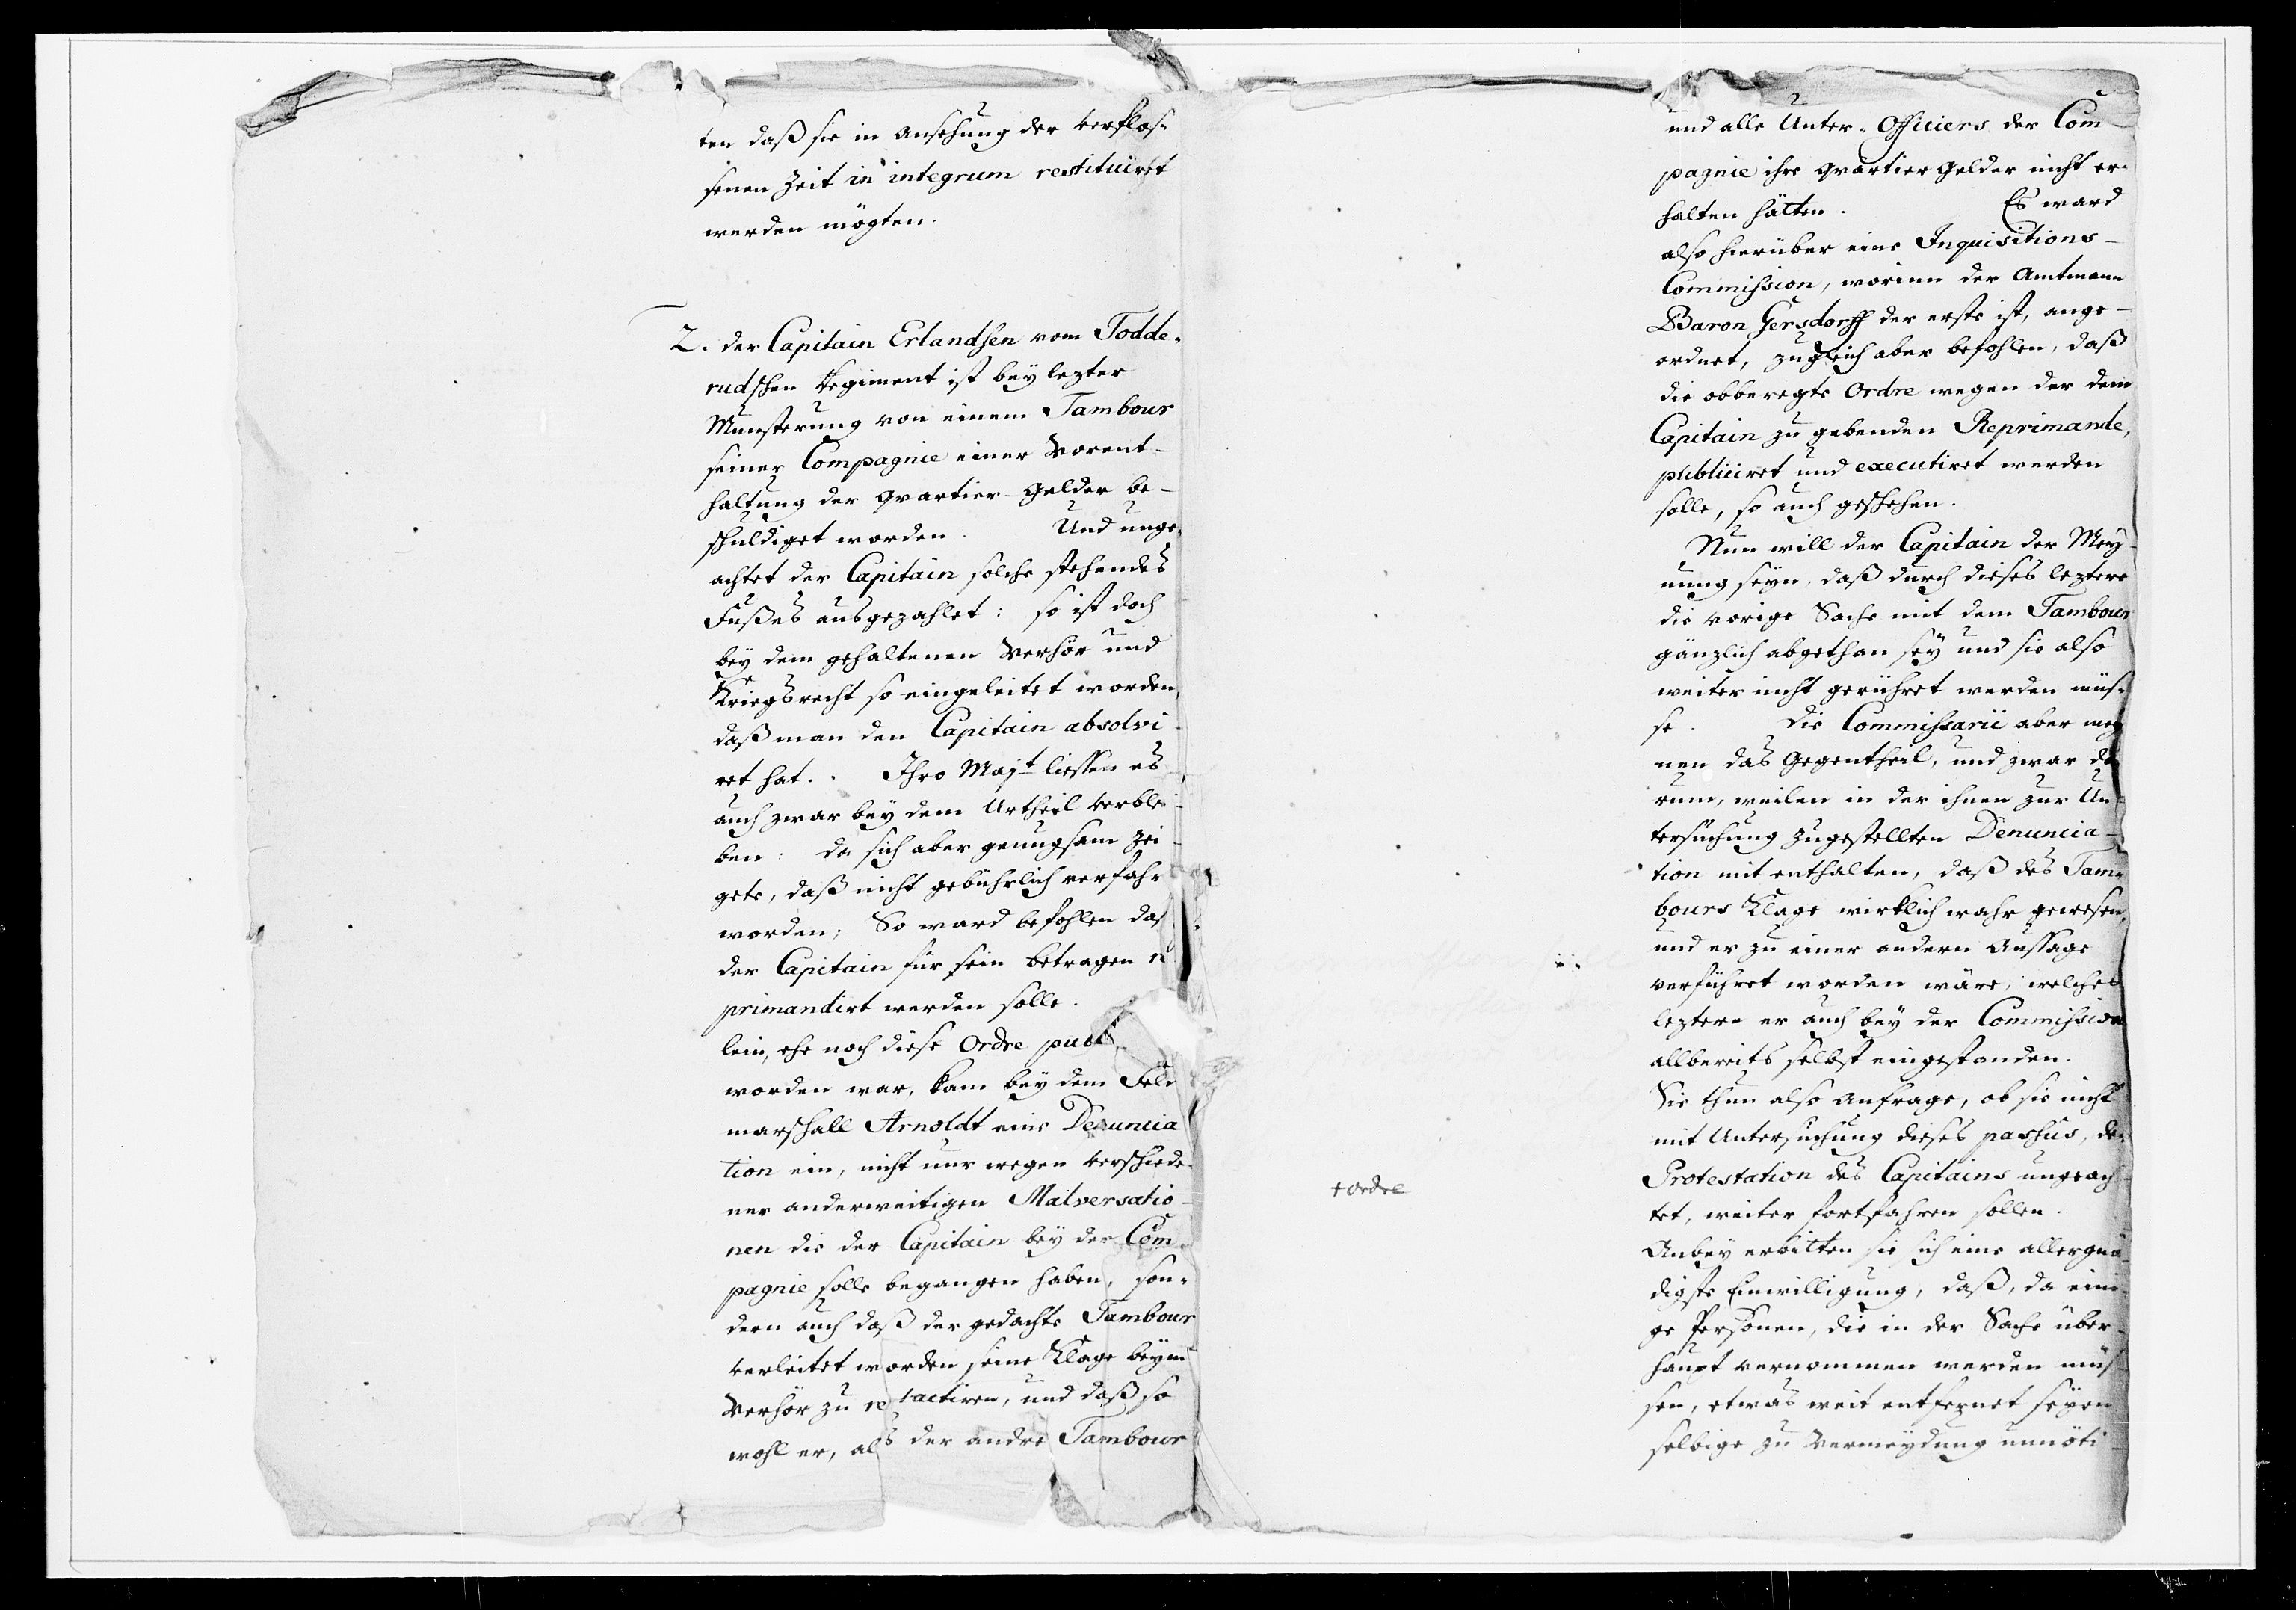 ten daß sie in ansehung der verflos-
senen Zeit in integrum restituiret
werden mögten.
2. der Capitain Erlandsen vom Todde-
rudschen Regiment ist bey lezter
Munsterung von einem Tambour
seiner Compagnie einer Vorent-
haltung der quartier-Gelder be-
schuldiget worden. Und unge-
achtet der Capitain solche stehendes
Fußes ausgezahlet: so ist doch
bey dem gehaltenen Verhör und
Kriegsrecht so eingeleitet worden,
daß man den Capitain absolvi-
ret hat. Ihro Majt liessen es
auch zwar bey dem Urtheil verblei-
ben: da sich aber genugsam zei-
gete, daß nicht gebührlich verfahr
worden; So ward befohlen daß
der Capitain für sein betragen re
primandirt werden solle.
lein, ehe noch diese Ordre publ
worden war, kam bey dem Feld
marschall Arnoldt eine Denuncia
tion ein, nicht nur wegen verschiede-
ner anderweitigen Malversatio-
nen die der Capitain bey der Com-
pagnie solle begangen haben, son-
dern auch daß der gedachte Tambour
verleitet worden seine Klage beym
Verhör zu re tactiren, und daß so
wohl er, als der andre Tambour
+ ordre
und alle Unter-Officiers der Com
pagnie ihre quartier Gelder nicht er-
halten hätten. Es ward
also hierüber eine Inquisitions-
Commission, worinn der Amtmann
Baron Gersdorff der erste ist, ange-
ordnet, zugleich aber befohlen, daß
die obberegte Ordre wegen der dem
Capitain zu gebenden Reprimande,
publiciret und executiret werden
solle, so auch geschehen.
Nun will der Capitain der Mey-
nung seyn, daß durch dieses leztere
die vorige Sache mit dem Tambour
gänzlich abgethan sey und sie also
weiter nicht gerühret werden müs-
se. Die Commissarii aber mey
nen das Gegentheil, und zwar da
rum, weilen in der ihnen zur Un-
tersuchung zugestellten Denuncia-
tion mit enthalten, daß des Tam-
bours Klage wirklich wahr gewesen,
und er zu einer andern Aussage
verführet worden wäre; welches
leztere er auch bey der Commission
allbereits selbst eingestanden.
Sie thun also Anfrage, ob sie nicht
mit Untersuchung dieses passus, der
Protestation des Capitains ungeach-
tet, weiter fortfahren sollen.
Anbey erbitten sie sich eine allergnä-
digste Einwilligung, daß, da eini-
ge Personen, die in der Sache über-
haupt vernommen werden müs-
sen, etwas weit entfernet seyen
selbige zu Vermeydung unnöti-